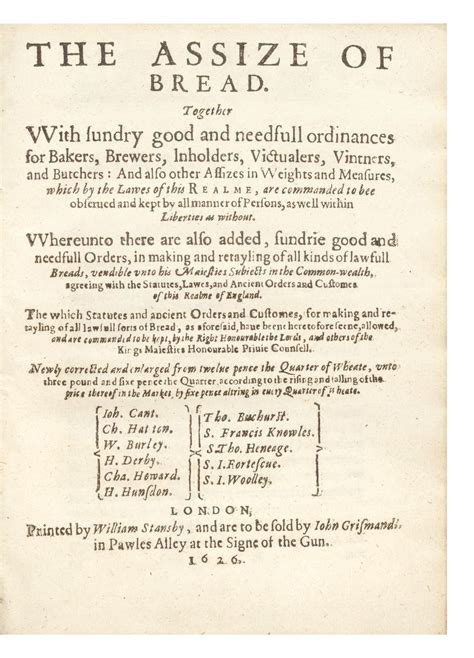 THE ASSIZE OF
BREAD.
Together
VVith sundry good and needfull ordinances
for Bakers, Brewers, Inholders, Victualers, Vintners,
and Butchers: And also other Assizes in Weights and Measures,
which by the Lawes of this REALME, are commanded to bee
obserued and kept by all manner of Persons, as well within
Liberties as without.
VVhereunto there are also added, sundrie good and
needfull Orders, in making and retayling of all kinds of lawfull
Breads, vendible vnto his Maiesties Subiects in the Common-wealth,
agreeing with the Statutes, Lawes, and Ancient Orders and Customes
of this Realme of England.
The which Statutes and ancient Orders and Customes, for making and re-
tayling of all lawfull sorts of Bread, as aforesaid, haue been heretofore seene, allowed,
and are commanded to be kept, by the Right Honourable the Lords, and others of the
Kings Maiesties Honourable Priuie Counsell.
Newly corrected and enlarged from twelue pence the Quarter of Wheate, vnto
three pound and sixe pence the Quarter, according to the rising and falling of the
price thereof in the Market, by sixe pence altring in euery Quarter of Wheate.
Ioh. Cant.
Ch. Hatton.
W. Burley.
H. Derby.
Cha. Howard.
H. Hunsdon.
Tho. Buchurst.
S. Francis Knowles.
S. Tho. Heneage.
S. I. Fortescue.
S. I. Woolley.
LONDON,
Printed by William Stansby, and are to be sold by Iohn Grismand
in Pawles Alley at the Signe of the Gun.
1626.